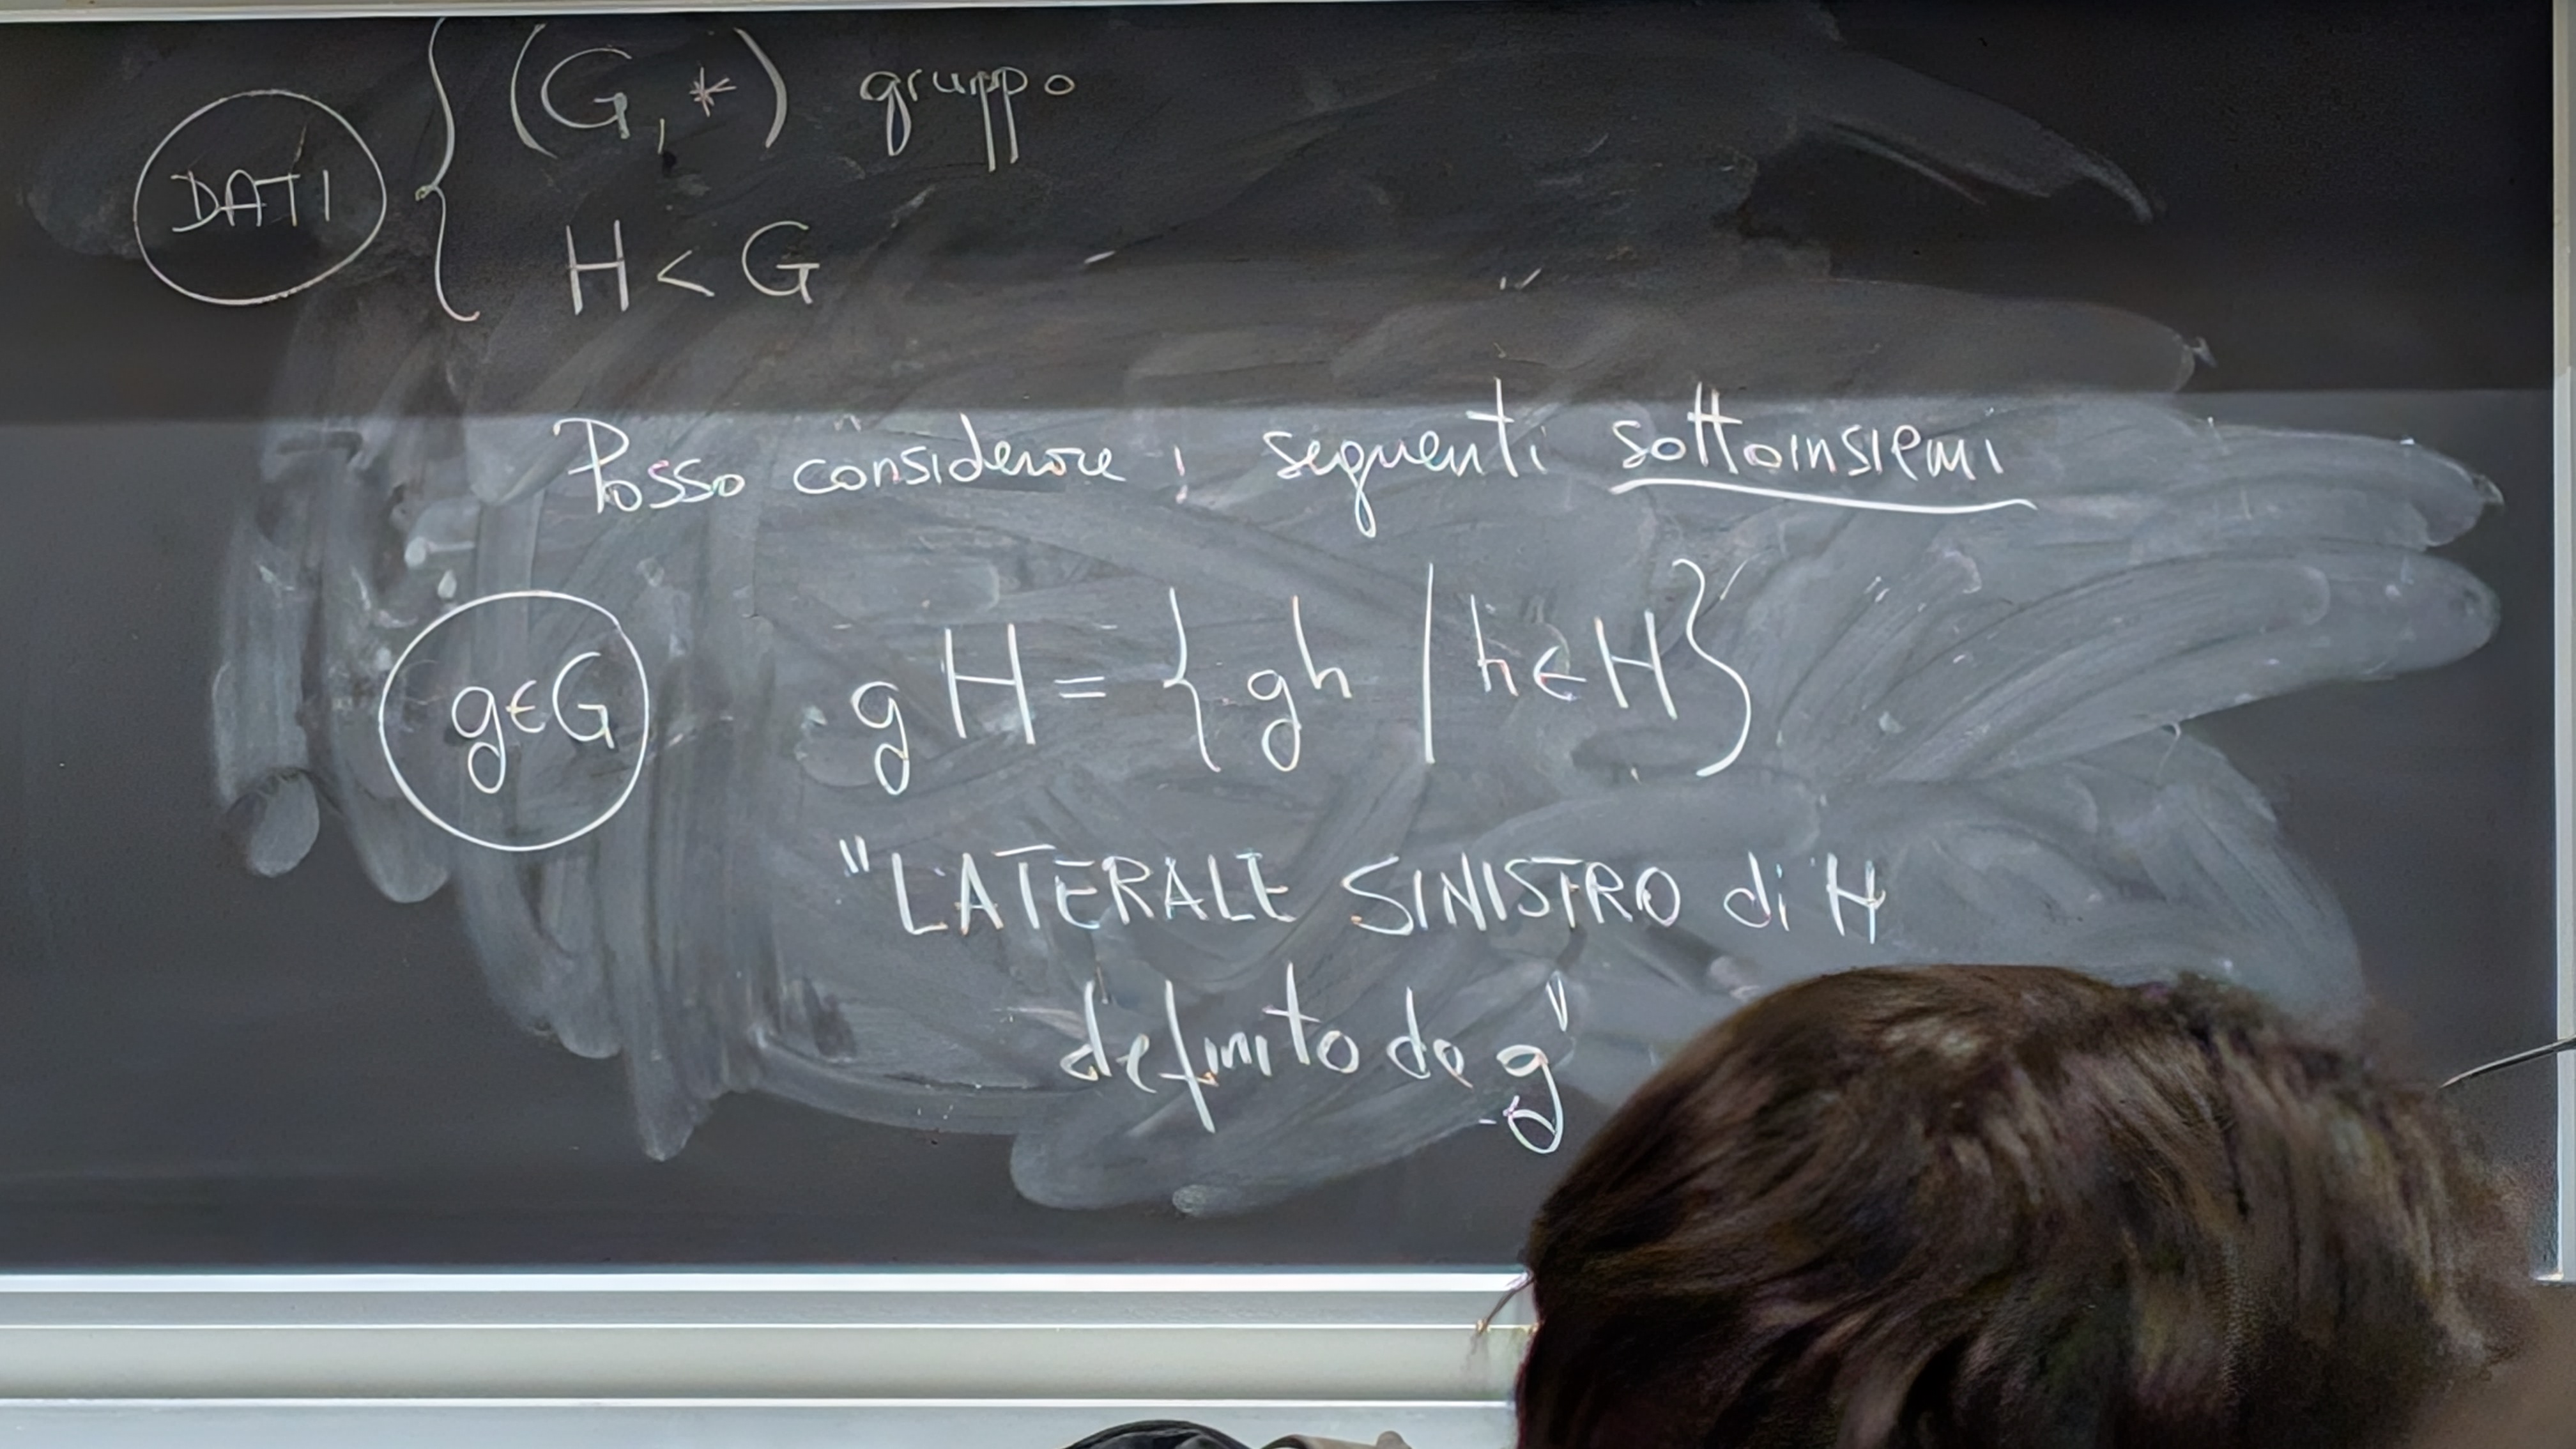 DATI { (G, *) gruppo
H < G
Posso considerare i seguenti sottoinsiemi
g∈G gH = { gh | h∈H }
"LATERALE SINISTRO di H
definito da g"